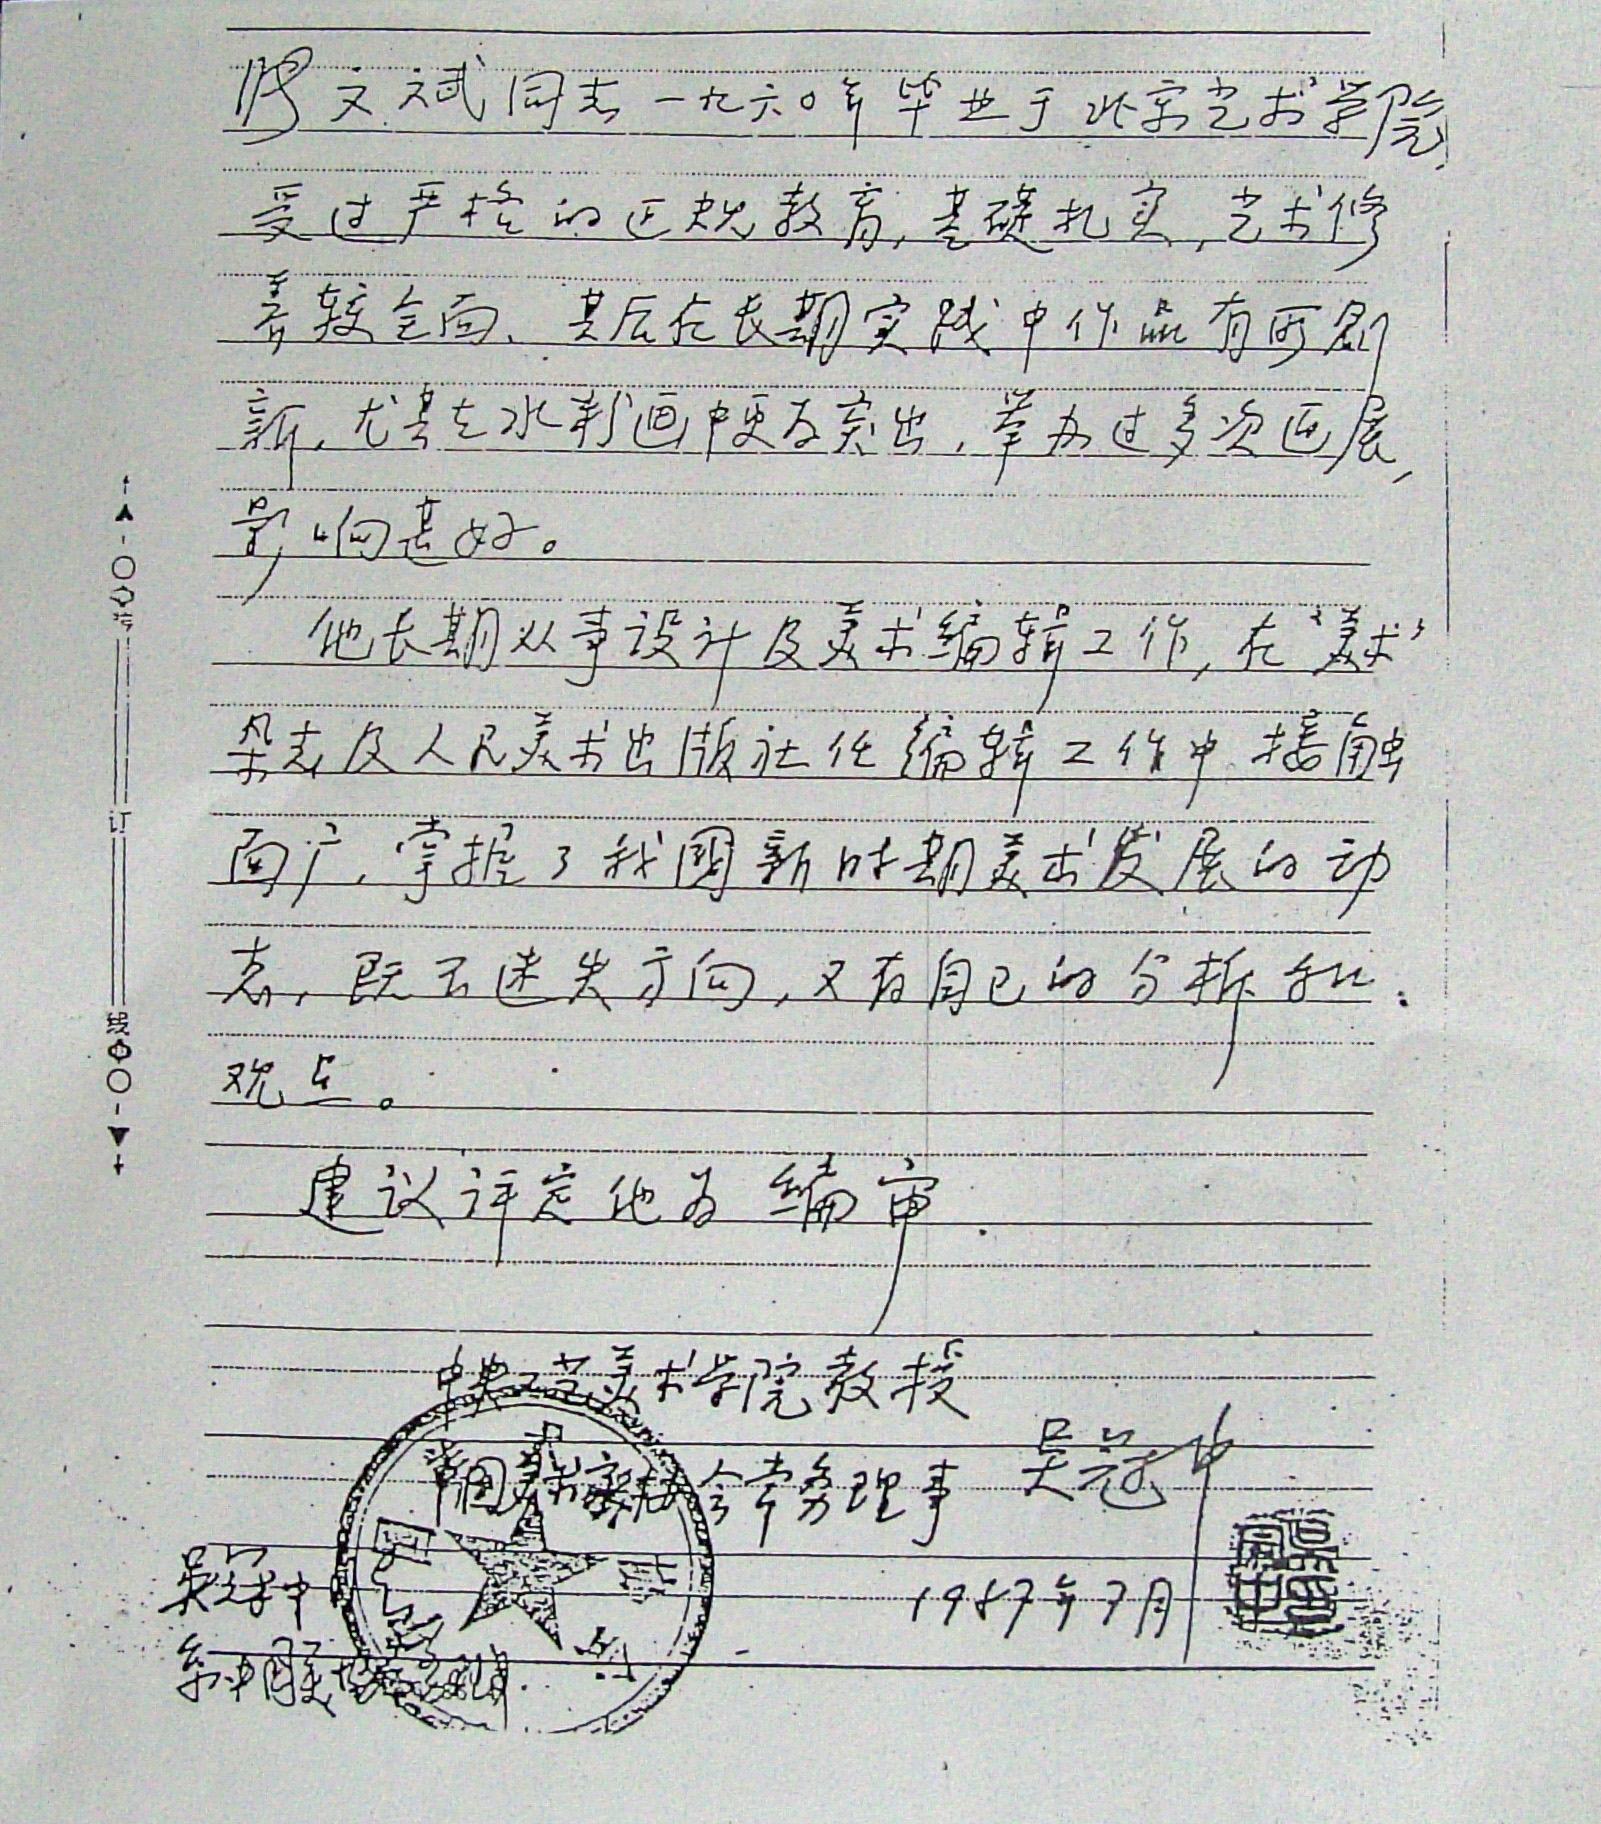 缪文斌同志一九六〇年毕业于北京艺术学院,
受过严格的正规教育,基礎扎实,艺术修
养较全面、其后在长期实践中作品有所创
新,尤其在水彩画中更为突出,举办过多次画展,
影响甚好。
他长期从事设计及美术编辑工作,在“美术”
杂志及人民美术出版社任编辑工作中接触
面广,掌握了我國新时期美术发展的动
态,既不迷失方向,又有自己的分析和
观点。
建议评定他为编审.
中央工艺美术学院教授
中国美术家协会常务理事 吴冠中
1987年7月
吴冠中印
吴冠中
系中国美协
订
线